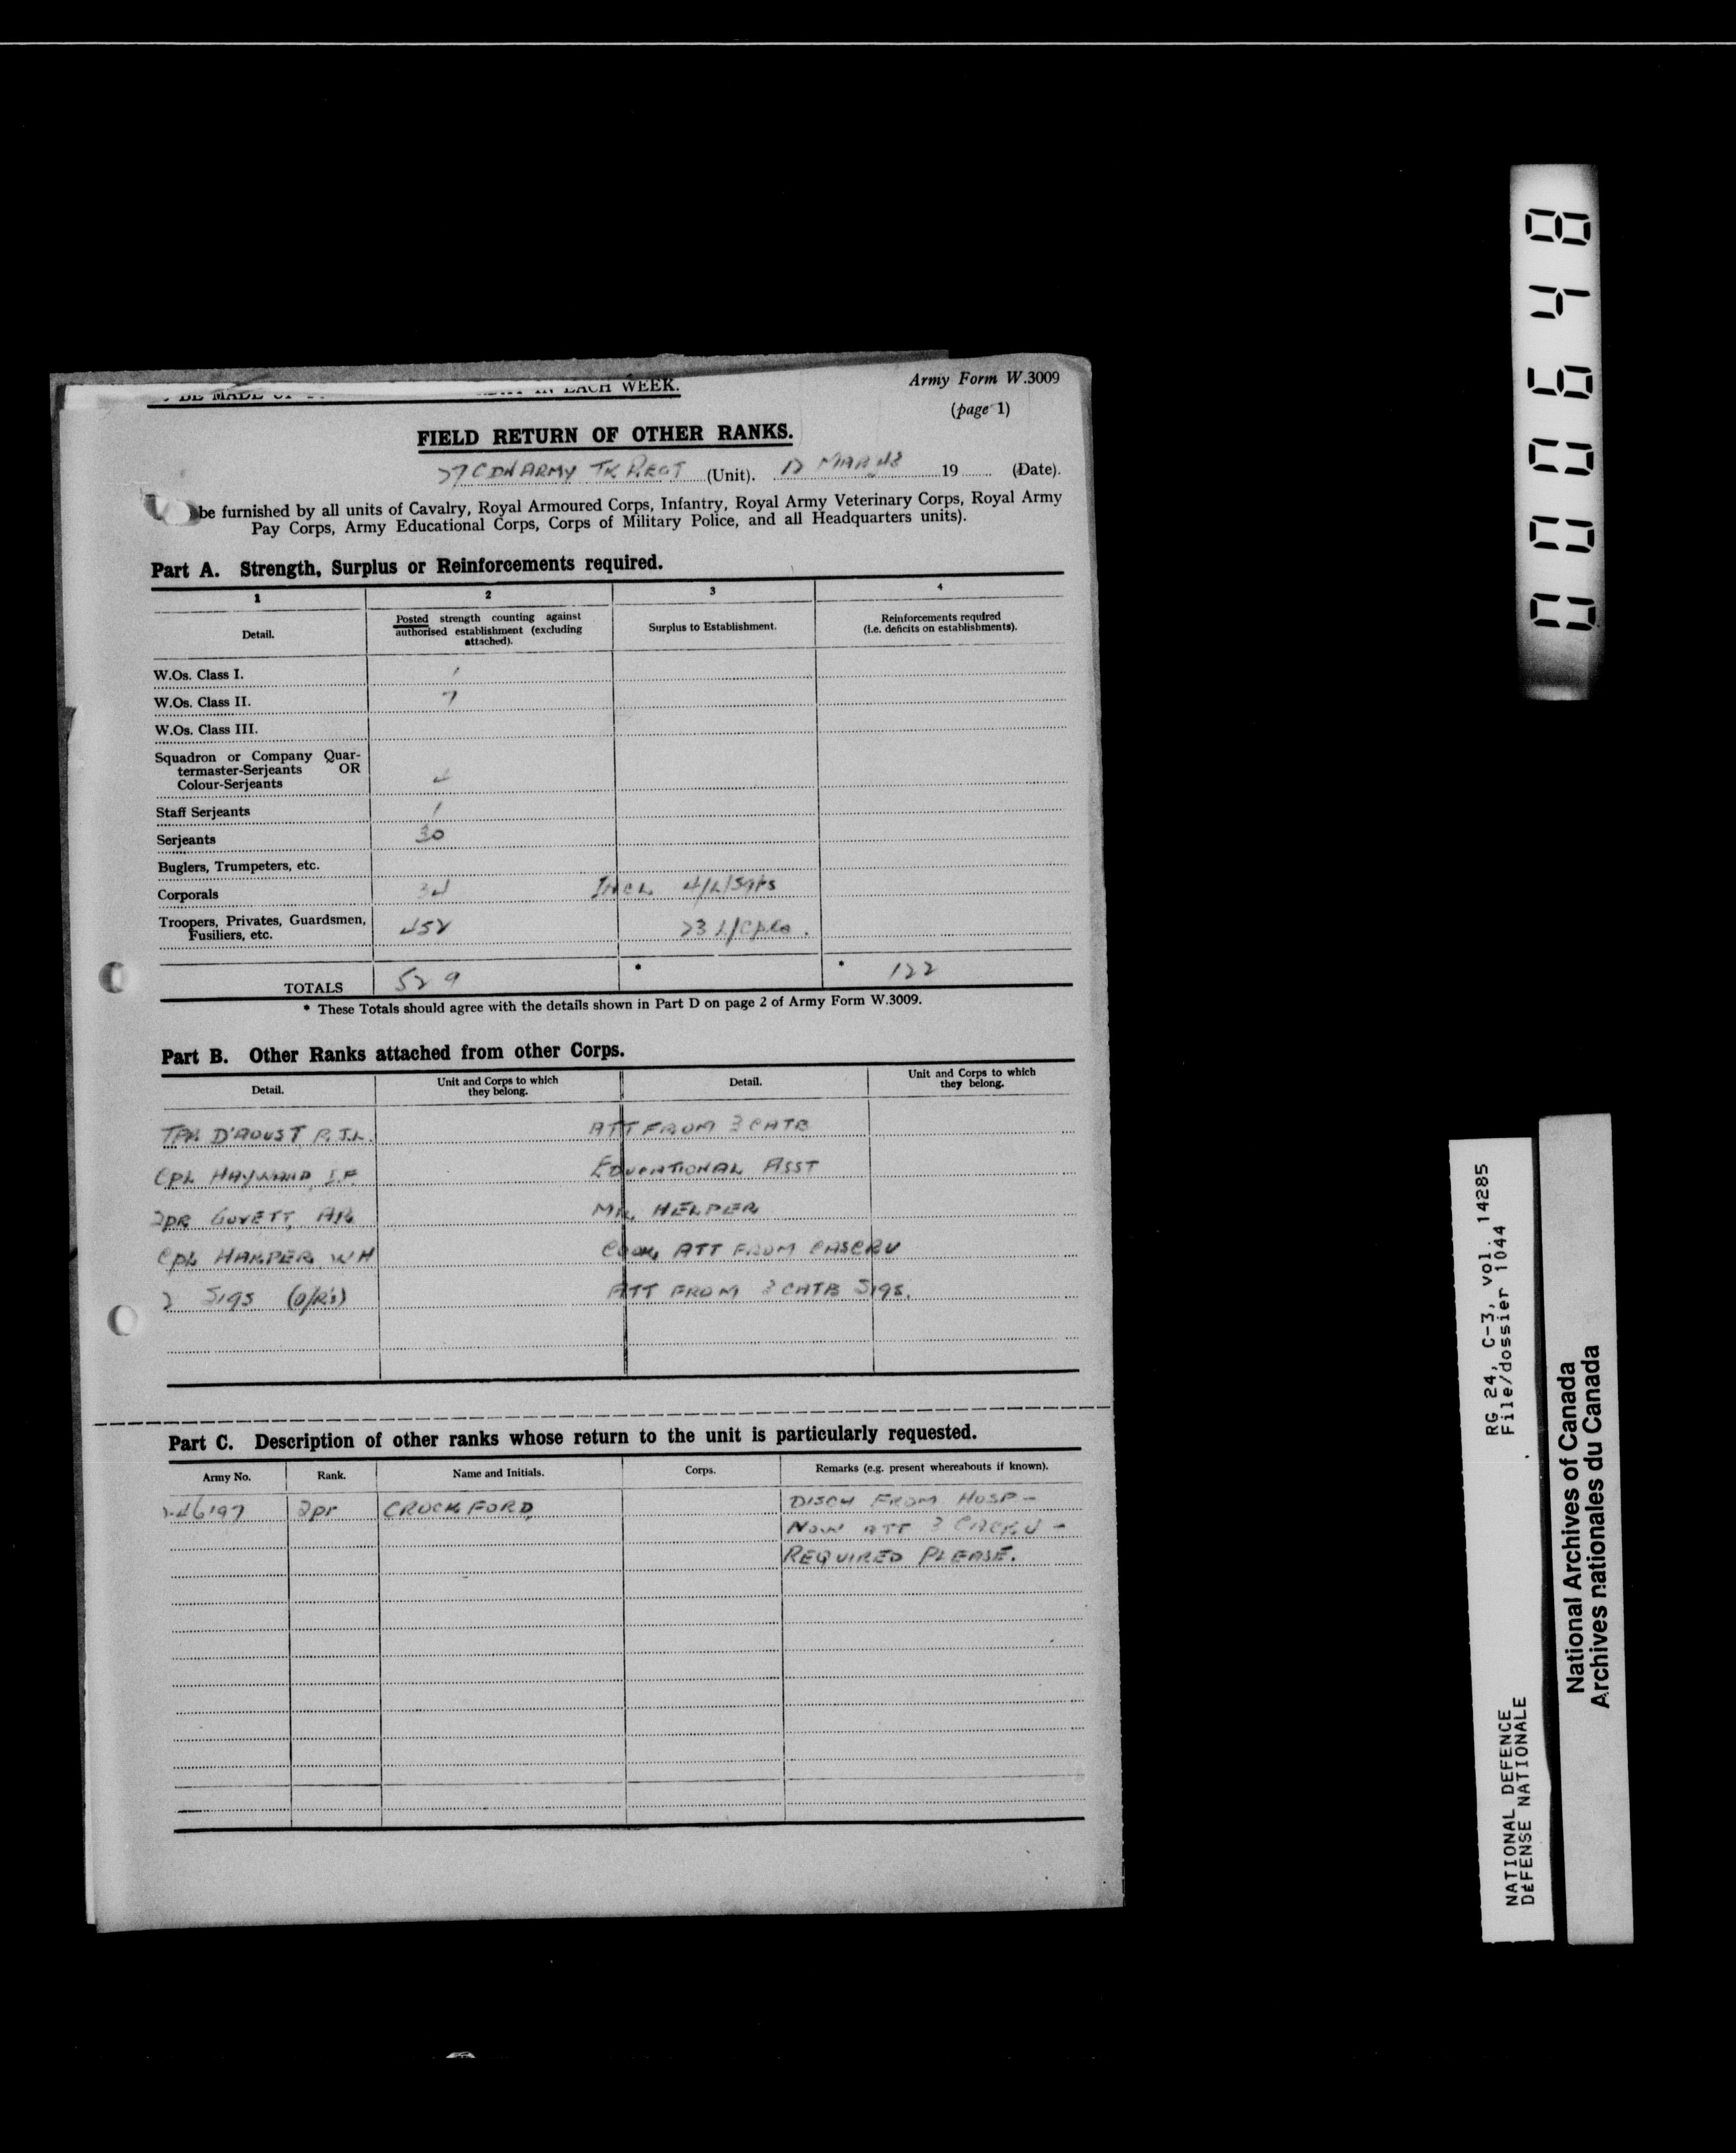 IN EACH WEEK.
Army Form W.3009
(page 1)
FIELD RETURN OF OTHER RANKS.
27 CDN ARMY TK REGT (Unit). MAR 43 19 (Date).
be furnished by all units of Cavalry, Royal Armoured Corps, Infantry, Royal Army Veterinary Corps, Royal Army
Pay Corps, Army Educational Corps, Corps of Military Police, and all Headquarters units).
Part A. Strength, Surplus or Reinforcements required.
1 2 3 4
Detail.
Posted strength counting against
authorised establishment (excluding
attached).
Surplus to Establishment.
Reinforcements required
(i.e. deficits on establishments).
W.Os. Class I. 1
W.Os. Class II. 7
W.Os. Class III.
Squadron or Company Quar-
termaster-Serjeants OR
Colour-Serjeants 4
Staff Serjeants 1
Serjeants 30
Buglers, Trumpeters, etc.
Corporals 34 INCL 4/L/Sgts
Troopers, Privates, Guardsmen,
Fusiliers, etc. 452 23 L/Cpls.
TOTALS 529 * * 122
* These Totals should agree with the details shown in Part D on page 2 of Army Form W.3009.
Part B. Other Ranks attached from other Corps.
Detail.
Unit and Corps to which
they belong.
Detail.
Unit and Corps to which
they belong.
TPR D'AOUST P.J.L. ATT FROM 3 CATB
CPL HAYWARD, I.F. EDUCATIONAL ASST
TPR GOVETT, AR HELPER
CPL HARPER WH COOK, ATT FROM CASCRU
2 SIGS (O/R's) ATT FROM 3 CATB SIGS.
Part C. Description of other ranks whose return to the unit is particularly requested.
Army No. Rank. Name and Initials. Corps. Remarks (e.g. present whereabouts if known).
Tpr CROCKFORD, DISCH FROM HOSP -
NOW ATT 3 CACRU -
REQUIRED PLEASE.
000648
RG 24, C-3, vol. 14285
File/dossier 1044
NATIONAL DEFENCE
DÉFENSE NATIONALE
National Archives of Canada
Archives nationales du Canada